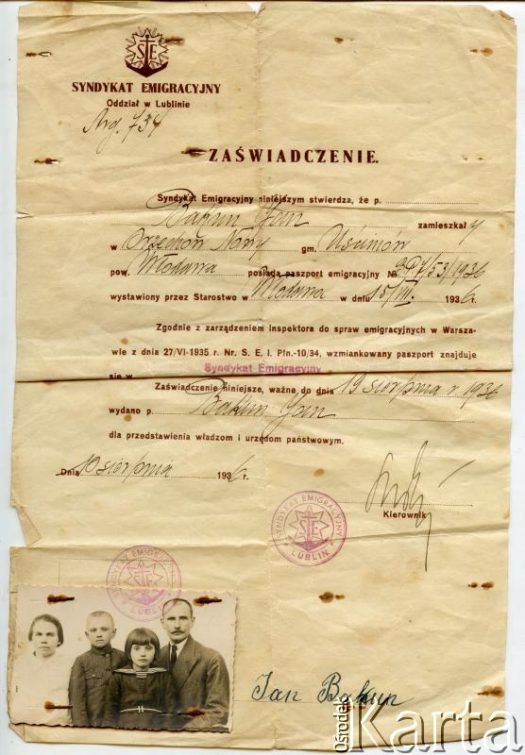 SE
SYNDYKAT EMIGRACYJNY
Oddział w Lublinie
734
ZAŚWIADCZENIE.
Syndykat Emigracyjny niniejszym stwierdza, że p.
Bakun Jan zamieszkały
w Orzechów Nowy gm. Uścimów
pow. Włodawa posiada paszport emigracyjny № /53/1936
wystawiony przez Starostwo w Włodawa w dniu 15/VII. 1936 r.
Zgodnie z zarządzeniem Inspektora do spraw emigracyjnych w Warsza-
wie z dnia 27/VI-1935 r. Nr. S. E. I. Pfn.-10/34, wzmiankowany paszport znajduje
się w Syndykat Emigracyjny
Zaświadczenie niniejsze, ważne do dnia 19 sierpnia r. 1936
wydano p. Bakun Jan
dla przedstawienia władzom i urzędom państwowym.
Dnia 10 sierpnia 1936 r.
Kierownik
SYNDYKAT EMIGRACYJNY
SE
LUBLIN
SYNDYKAT EMIGRACYJNY
Jan Bakun
ośrodek
Karta